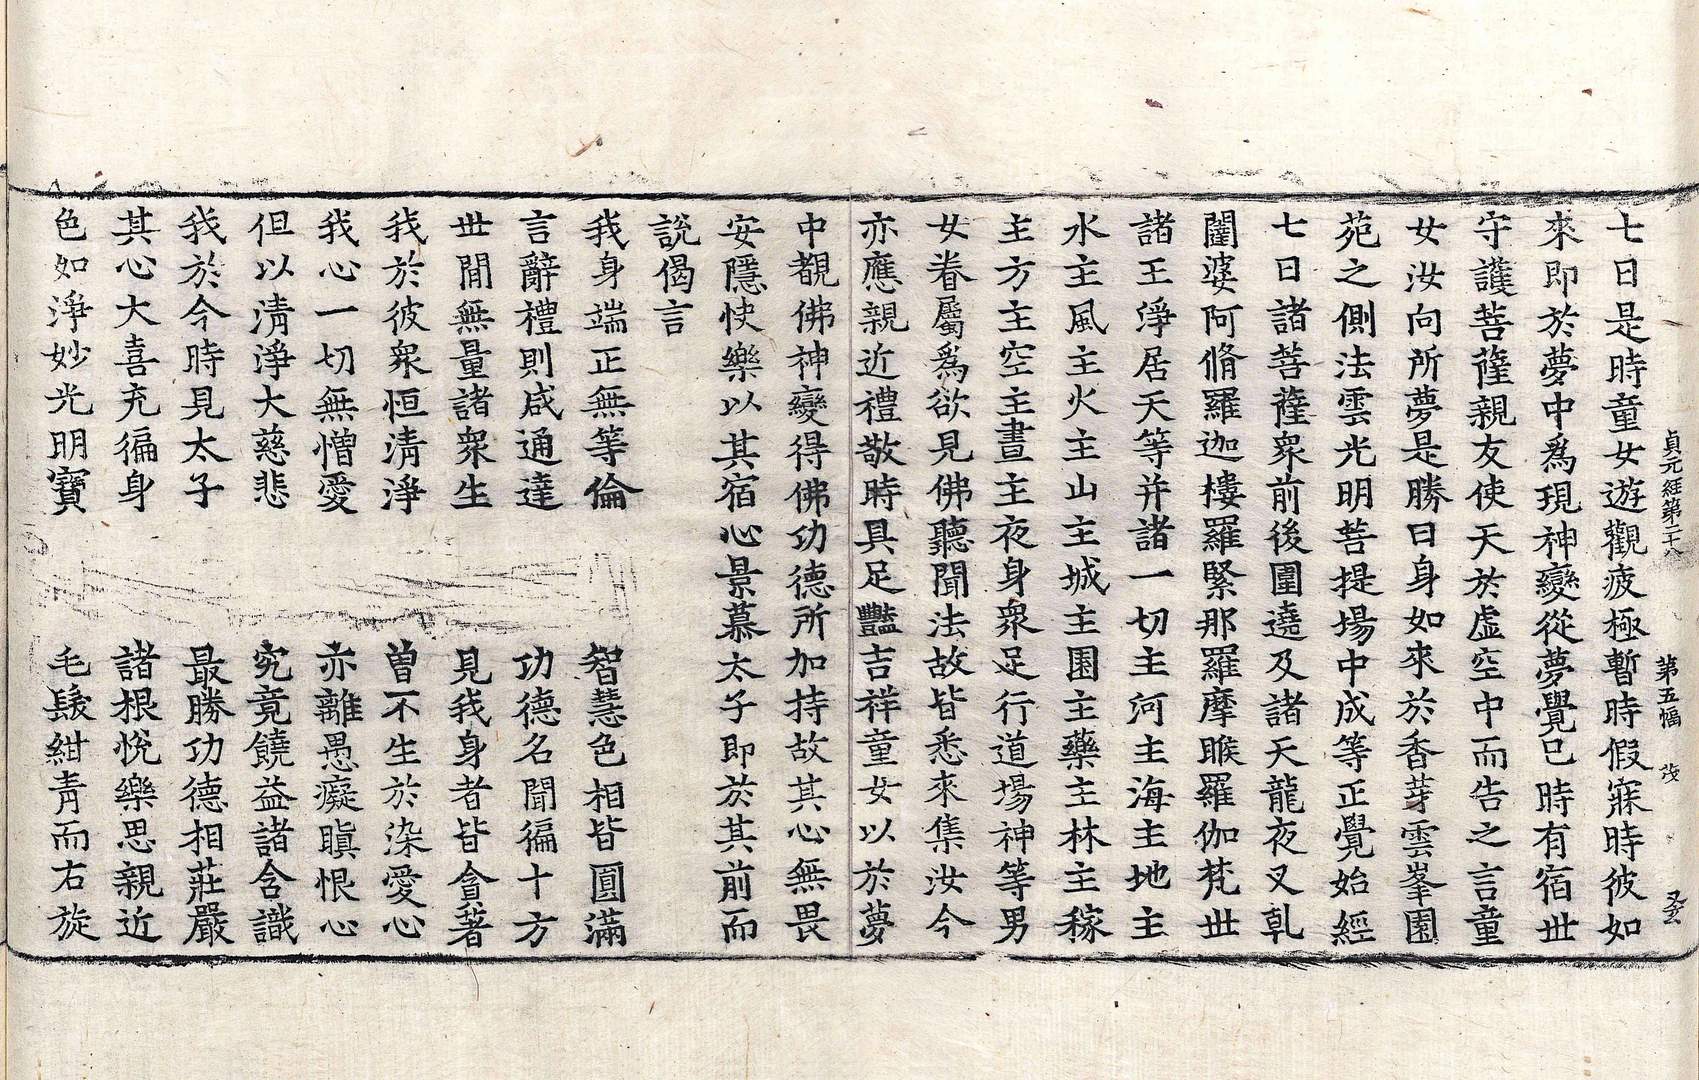 貞元經第二十八 第五幅 茂
七日是時童女遊觀疲極暫時假寐時彼如
來即於夢中爲現神變從夢覺已時有宿世
守護菩薩親友使天於虛空中而告之言童
女汝向所夢是勝日身如來於香芽雲峯園
苑之側法雲光明菩提場中成等正覺始經
七日諸菩薩衆前後圍遶及諸天龍夜叉乹
闥婆阿脩羅迦樓羅緊那羅摩睺羅伽梵世
諸王淨居天等并諸一切主河主海主地主
水主風主火主山主城主園主藥主林主稼
主方主空主晝主夜身衆足行道場神等男
女眷屬爲欲見佛聽聞法故皆悉來集汝今
亦應親近禮敬時具足豔吉祥童女以於夢
中覩佛神變得佛功德所加持故其心無畏
安隱快樂以其宿心景慕太子即於其前而
說偈言
我身端正無等倫 智慧色相皆圓滿
言辭禮則咸通達 功德名聞徧十方
世間無量諸衆生 見我身者皆貪著
我於彼衆恒清淨 曾不生於染愛心
我心一切無憎愛 亦離愚癡瞋恨心
但以清淨大慈悲 究竟饒益諸含識
我於今時見太子 最勝功德相莊嚴
其心大喜充徧身 諸根悅樂思親近
色如淨妙光明寶 毛髮紺青而右旋